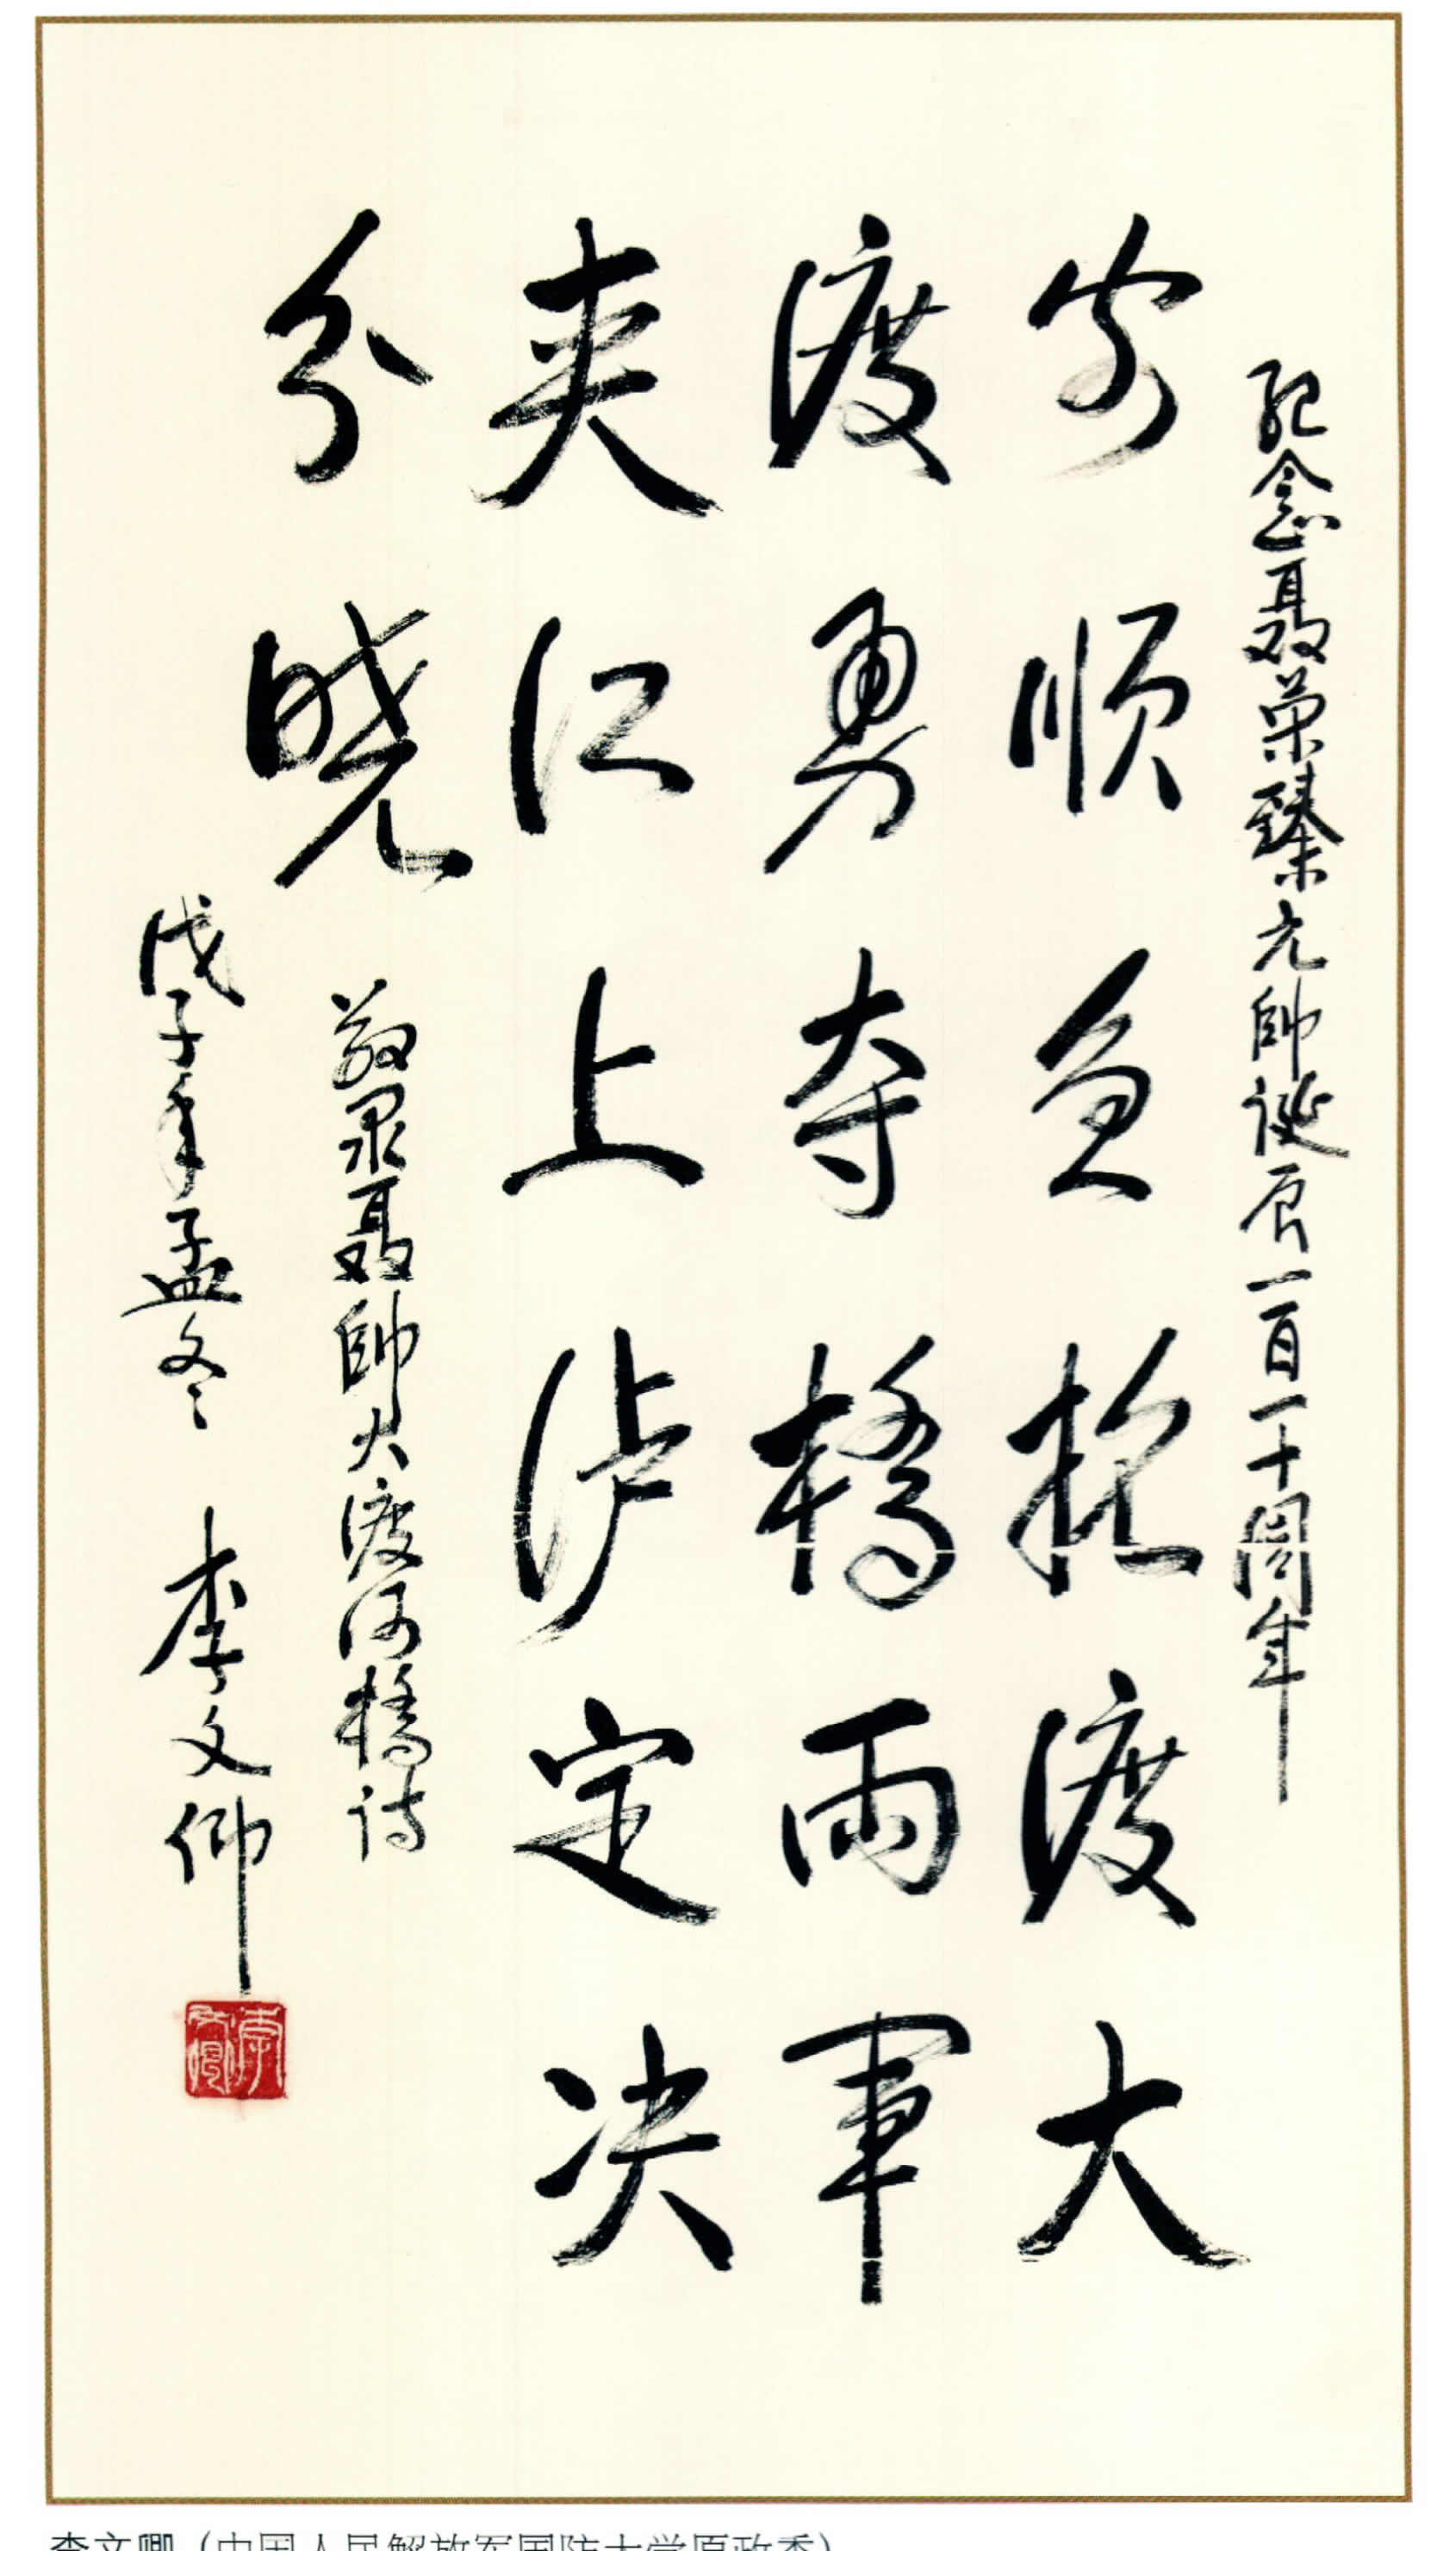 纪念聂荣臻元帅诞辰一百一十周年
安顺急抢渡大
渡勇夺橋两軍
夹江上泸定决
分晓
敬录聂帅大渡河橋诗
戊子年孟冬 李文卿
李文卿
李文卿（中国人民解放军国防大学原政委）